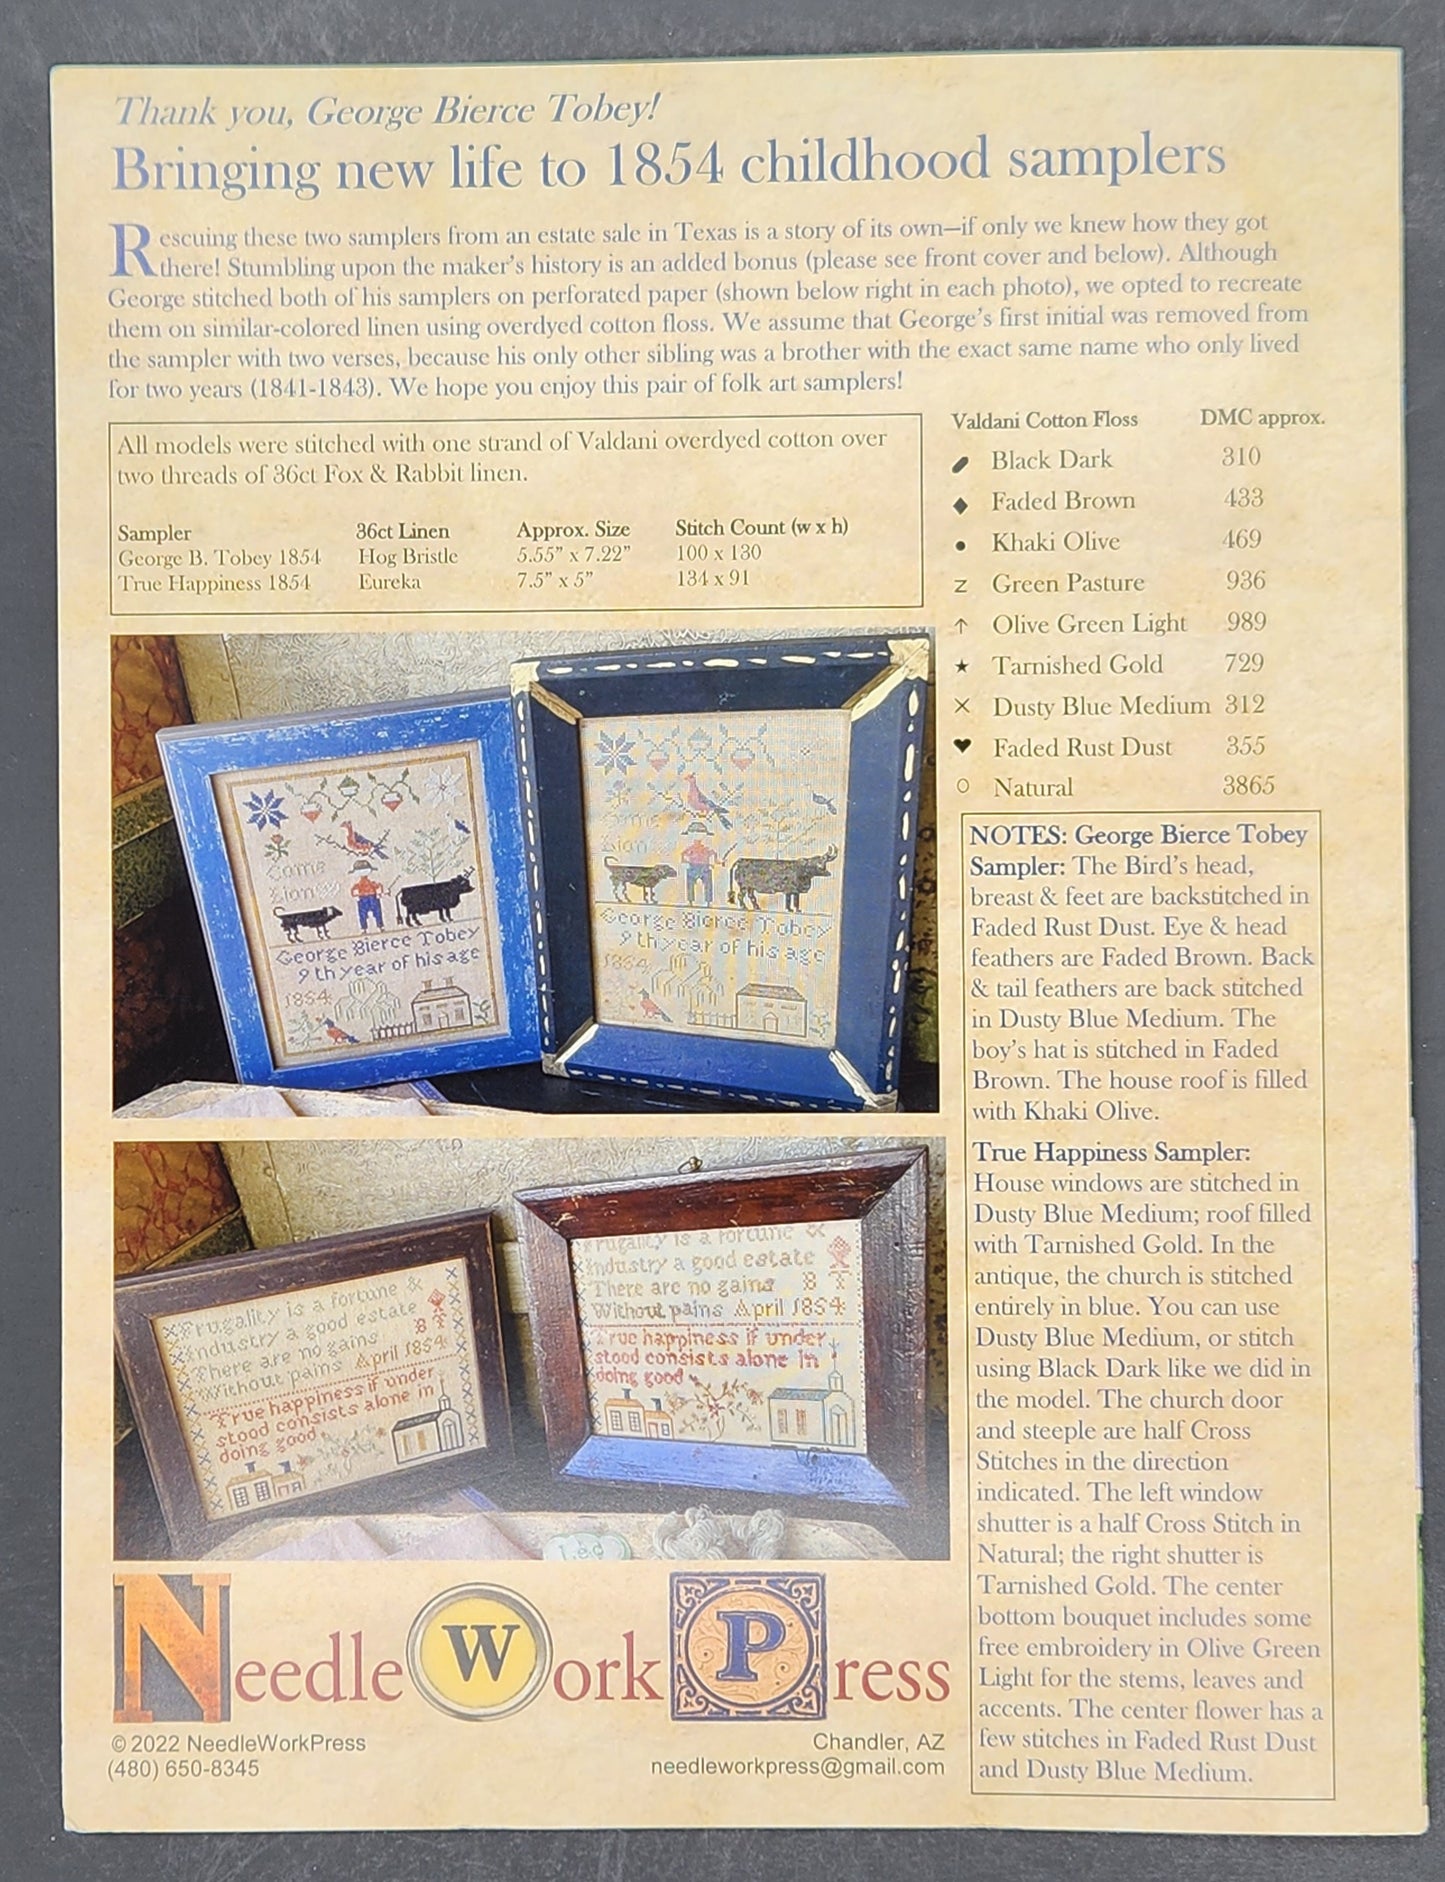 Thank you, George Bierce Tobey!
Bringing new life to 1854 childhood samplers
Rescuing these two samplers from an estate sale in Texas is a story of its own—if only we knew how they got
there! Stumbling upon the maker's history is an added bonus (please see front cover and below). Although
George stitched both of his samplers on perforated paper (shown below right in each photo), we opted to recreate
them on similar-colored linen using overdyed cotton floss. We assume that George's first initial was removed from
the sampler with two verses, because his only other sibling was a brother with the exact same name who only lived
for two years (1841-1843). We hope you enjoy this pair of folk art samplers!
All models were stitched with one strand of Valdani overdyed cotton over
two threads of 36ct Fox & Rabbit linen.
Sampler 36ct Linen Approx. Size Stitch Count (w x h)
George B. Tobey 1854 Hog Bristle 5.55" x 7.22" 100 x 130
True Happiness 1854 Eureka 7.5" x 5" 134 x 91
Valdani Cotton Floss DMC approx.
Black Dark 310
Faded Brown 433
Khaki Olive 469
Z Green Pasture 936
↑ Olive Green Light 989
★ Tarnished Gold 729
X Dusty Blue Medium 312
♥ Faded Rust Dust 355
O Natural 3865
Come
Lion
George Bierce Tobey
9th year of his age
1854
Come
Lion
George Bierce Tobey
9th year of his age
1854
Frugality is a fortune
Industry a good estate
There are no gains B T
Without pains April 1854
True happiness if under
stood consists alone in
doing good
Frugality is a fortune
Industry a good estate
There are no gains B T
Without pains April 1854
True happiness if under
stood consists alone in
doing good
NOTES: George Bierce Tobey
Sampler: The Bird's head,
breast & feet are backstitched in
Faded Rust Dust. Eye & head
feathers are Faded Brown. Back
& tail feathers are back stitched
in Dusty Blue Medium. The
boy's hat is stitched in Faded
Brown. The house roof is filled
with Khaki Olive.
True Happiness Sampler:
House windows are stitched in
Dusty Blue Medium; roof filled
with Tarnished Gold. In the
antique, the church is stitched
entirely in blue. You can use
Dusty Blue Medium, or stitch
using Black Dark like we did in
the model. The church door
and steeple are half Cross
Stitches in the direction
indicated. The left window
shutter is a half Cross Stitch in
Natural; the right shutter is
Tarnished Gold. The center
bottom bouquet includes some
free embroidery in Olive Green
Light for the stems, leaves and
accents. The center flower has a
few stitches in Faded Rust Dust
and Dusty Blue Medium.
NeedleWorkPress
© 2022 NeedleWorkPress
(480) 650-8345
Chandler, AZ
needleworkpress@gmail.com